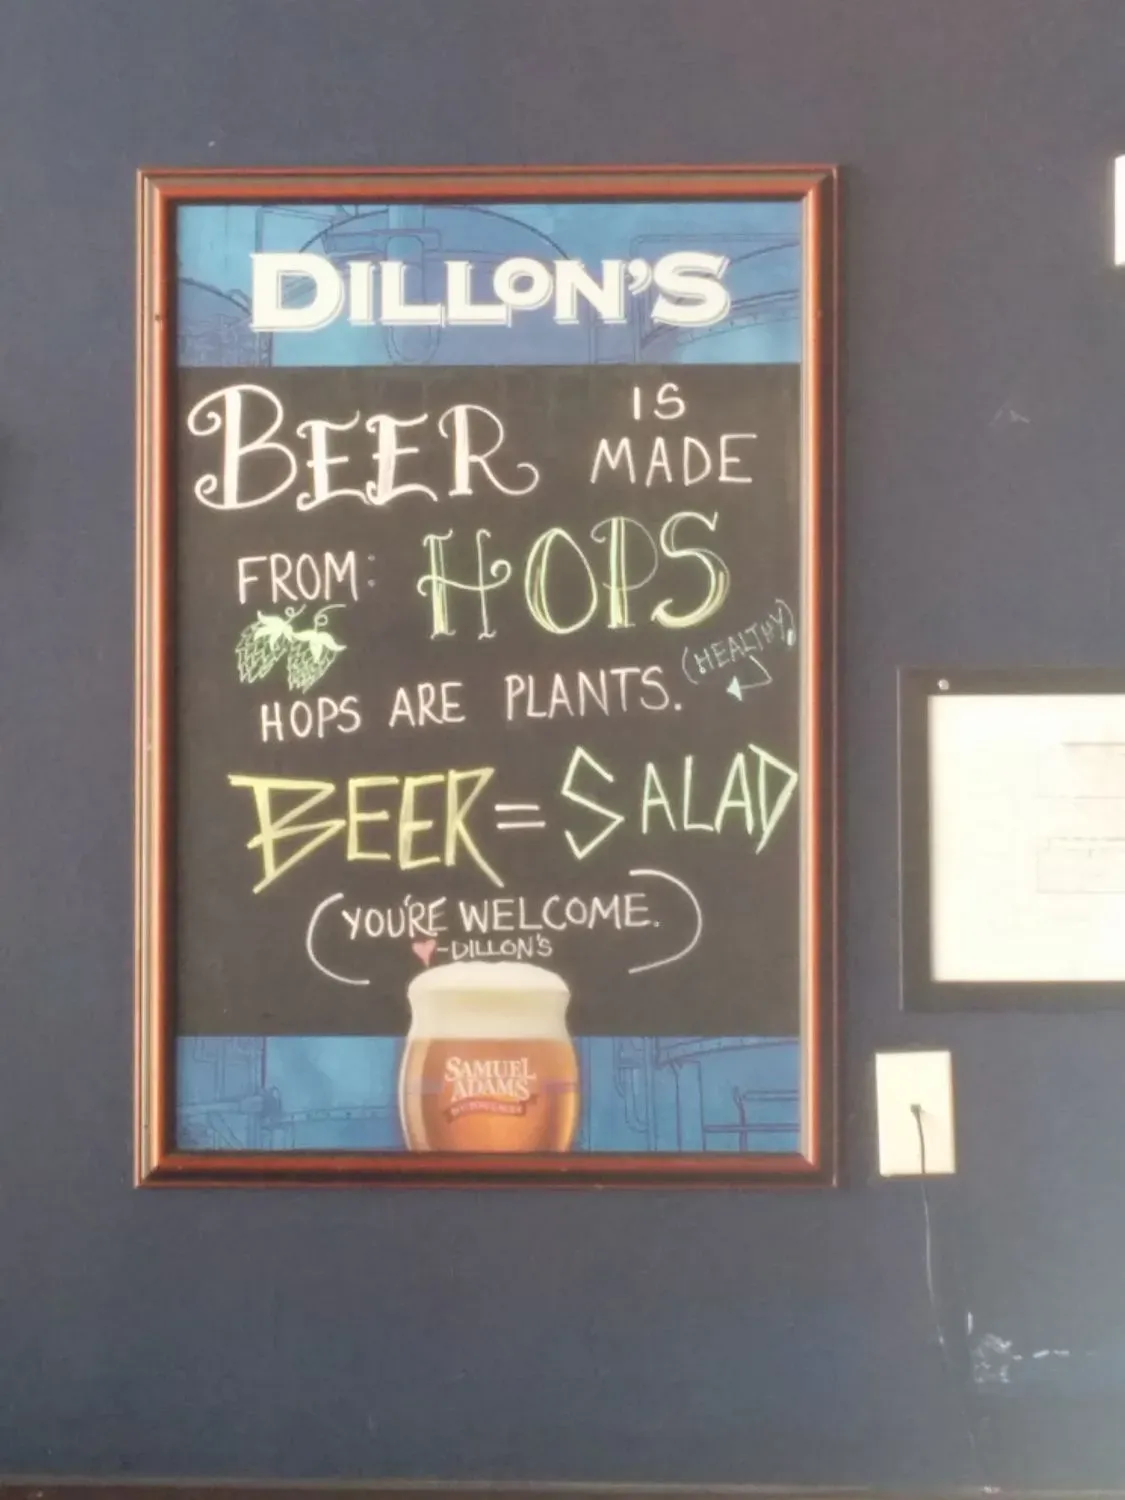 DILLON'S
BEER IS
MADE
FROM: HOPS
(HEALTHY)
HOPS ARE PLANTS.
BEER = SALAD
(YOU'RE WELCOME.
-DILLON'S)
SAMUEL
ADAMS